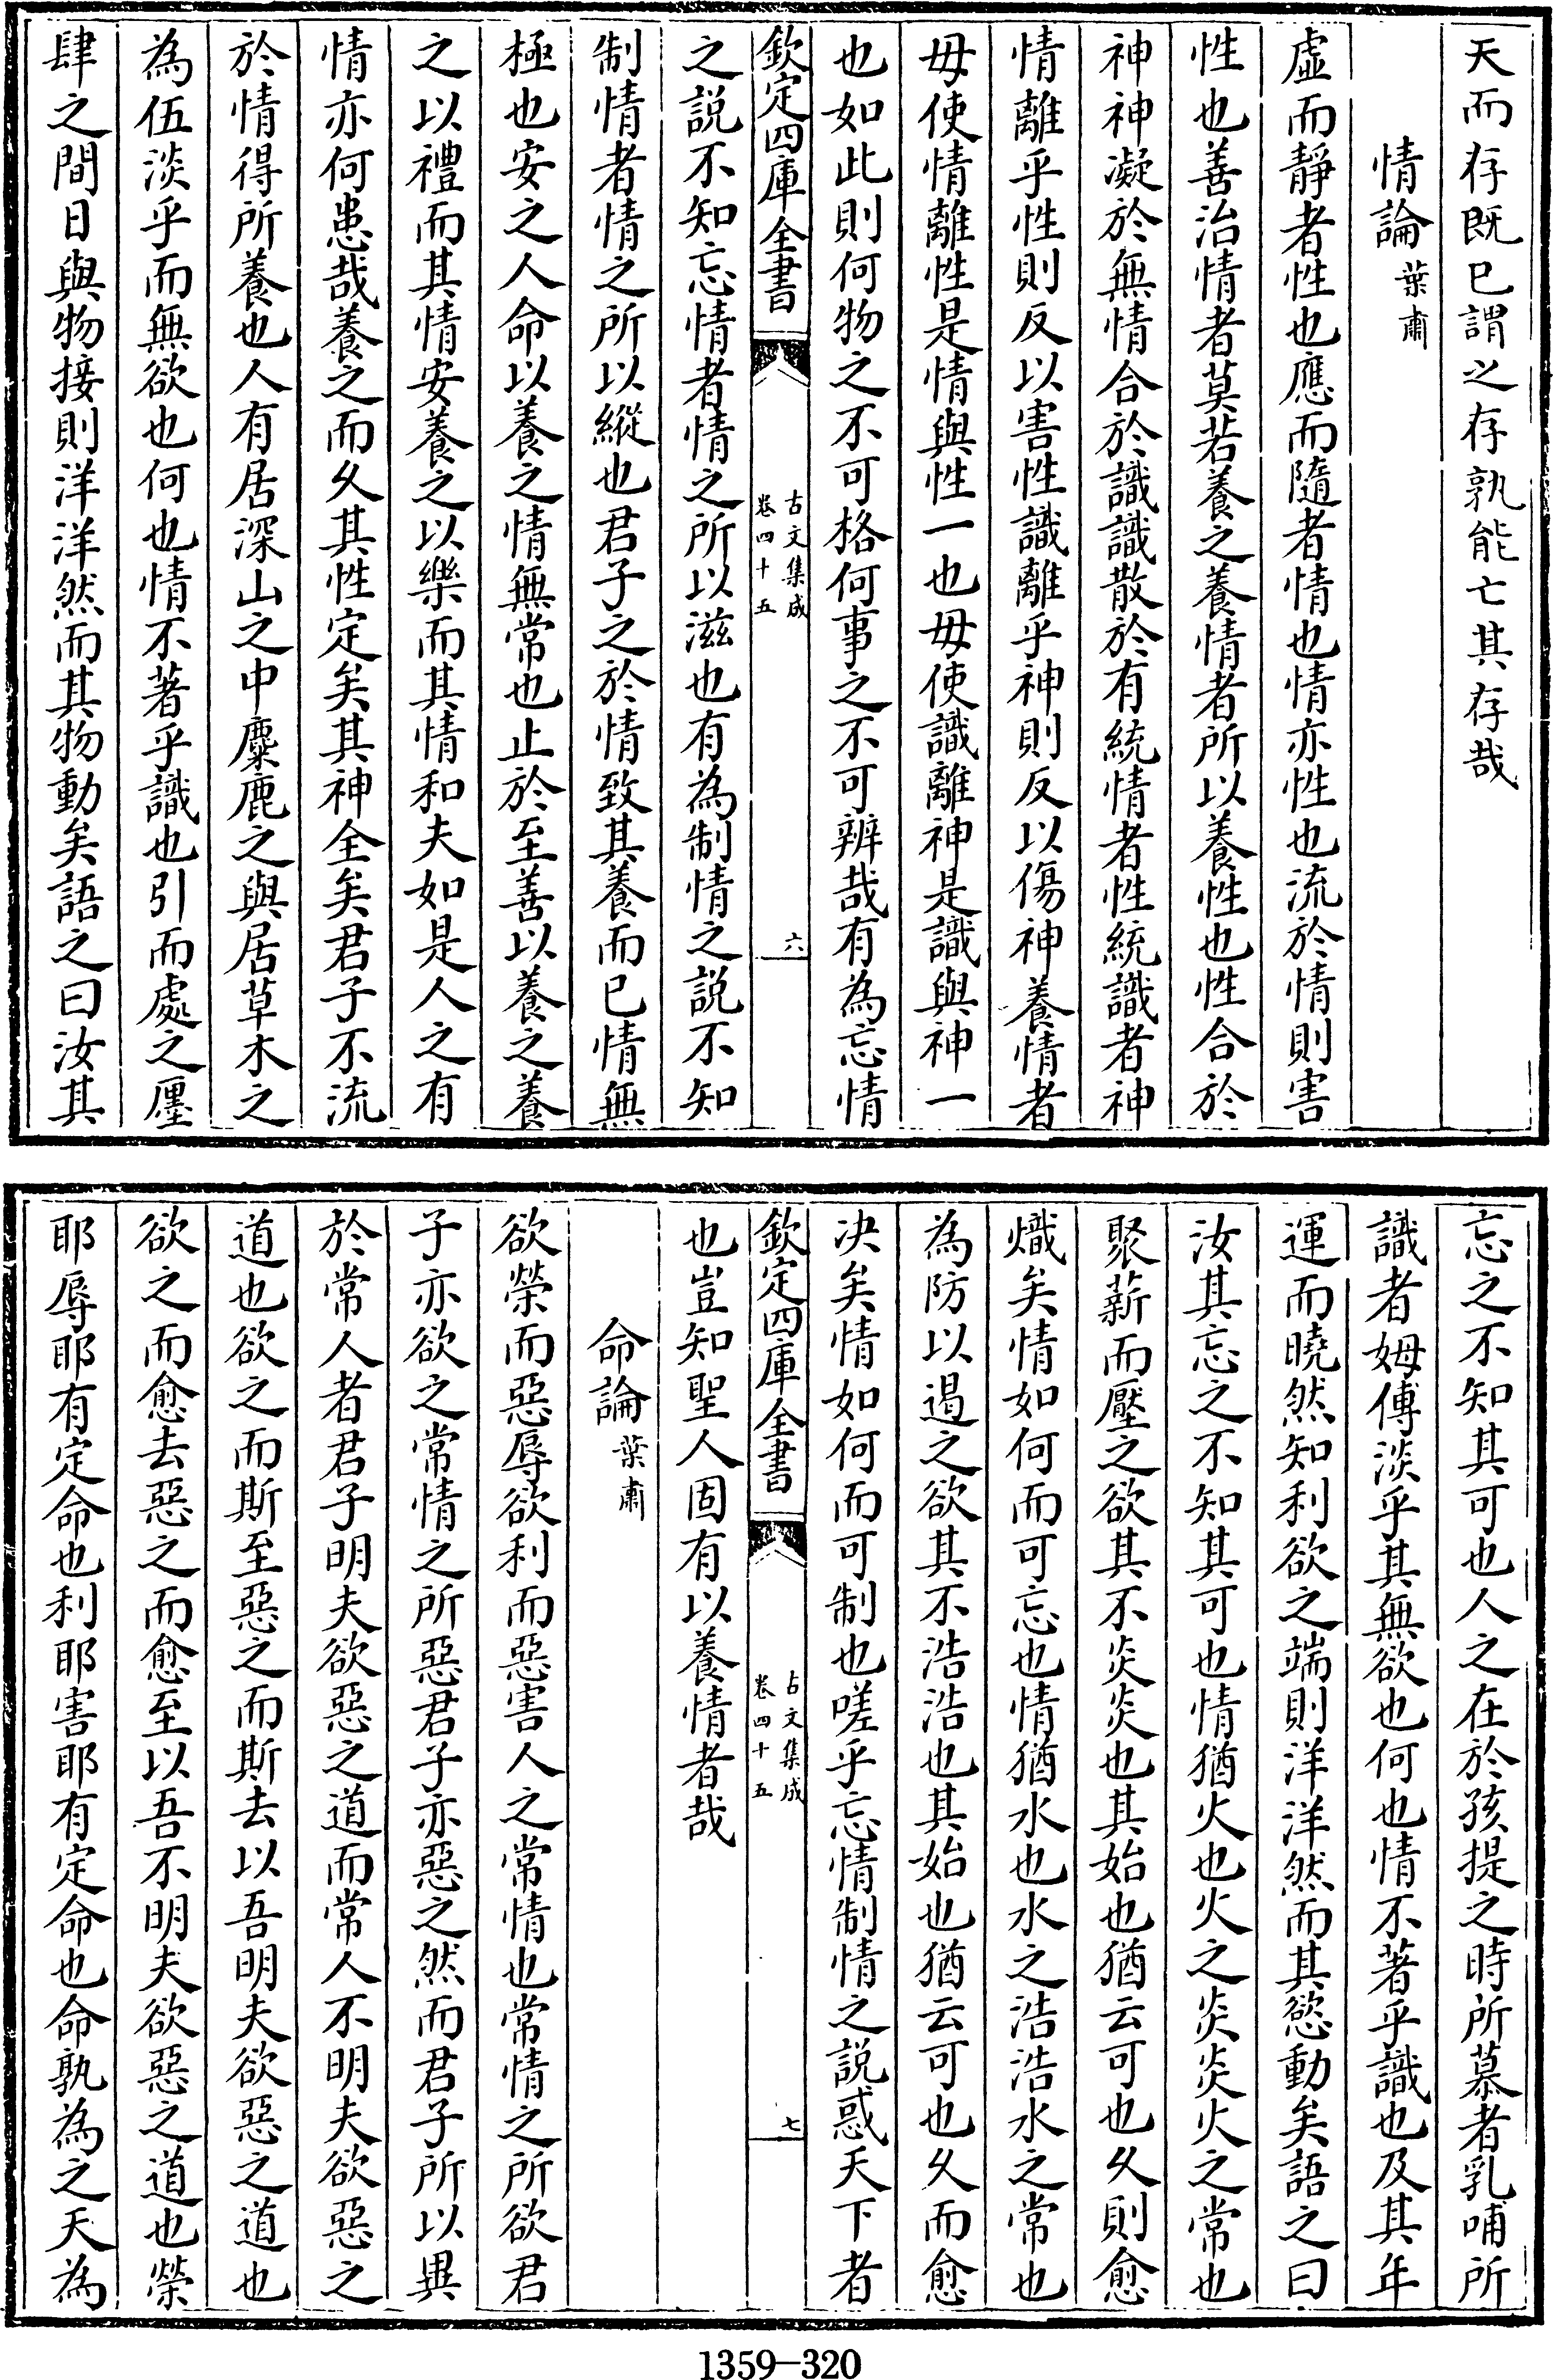 天而存既已謂之存孰能亡其存哉
情論葉肅
虛而靜者性也應而隨者情也情亦性也流於情則害
性也善治情者莫若養之養情者所以養性也性合於
神神凝於無情合於識識散於有統情者性統識者神
情離乎性則反以害性識離乎神則反以傷神養情者
毋使情離性是情與性一也毋使識離神是識與神一
也如此則何物之不可格何事之不可辨哉有為忘情
欽定四庫全書
古文集成
卷四十五
六
之說不知忘情者情之所以滋也有為制情之說不知
制情者情之所以縱也君子之於情致其養而已情無
極也安之人命以養之情無常也止於至善以養之養
之以禮而其情安養之以樂而其情和夫如是人之有
情亦何患哉養之而久其性定矣其神全矣君子不流
於情得所養也人有居深山之中麋鹿之與居草木之
為伍淡乎而無欲也何也情不著乎識也引而處之廛
肆之間日與物接則洋洋然而其物動矣語之曰汝其
忘之不知其可也人之在於孩提之時所慕者乳哺所
識者姆傅淡乎其無欲也何也情不著乎識也及其年
運而曉然知利欲之端則洋洋然而其慾動矣語之曰
汝其忘之不知其可也情猶火也火之炎炎火之常也
聚薪而壓之欲其不炎炎也其始也猶云可也久則愈
熾矣情如何而可忘也情猶水也水之浩浩水之常也
為防以遏之欲其不浩浩也其始也猶云可也久而愈
决矣情如何而可制也嗟乎忘情制情之說惑天下者
欽定四庫全書
古文集成
卷四十五
七
也豈知聖人固有以養情者哉
命論葉肅
欲榮而惡辱欲利而惡害人之常情也常情之所欲君
子亦欲之常情之所惡君子亦惡之然而君子所以異
於常人者君子明夫欲惡之道而常人不明夫欲惡之
道也欲之而斯至惡之而斯去以吾明夫欲惡之道也
欲之而愈去惡之而愈至以吾不明夫欲惡之道也榮
耶辱耶有定命也利耶害耶有定命也命孰為之天為
1359-320